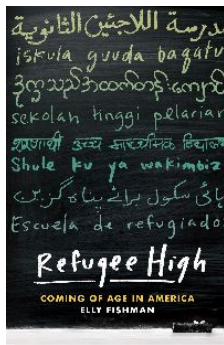 مدرسة اللاجئين الثانوية
iskula guuda baqatu
ဒုက္ခသည်အထက်တန်းကျော
sekolah tinggi pelarian
शरणार्थी उच्च माध्यमिक विद्याल
Shule ku ya wakimbiz
ہائی سکول برائے پناہ گزین
Escuela de refugiado
Refugee High
COMING OF AGE IN AMERICA
ELLY FISHMAN